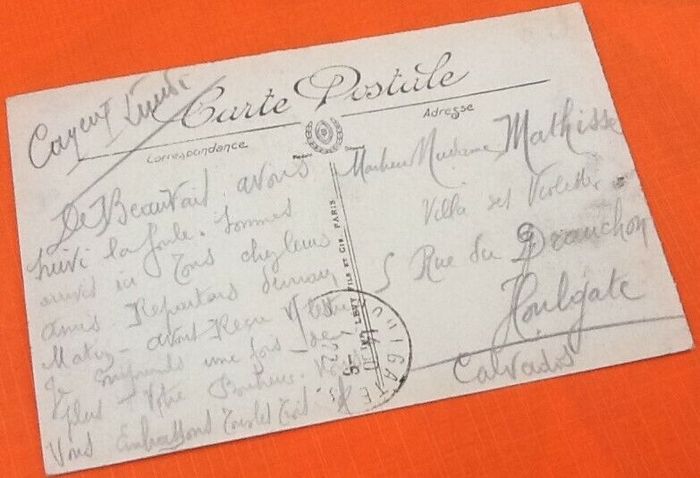 Carte Postale
Correspondance
Adresse
De Beauvais avons
suivi la foule. Sommes
arrivés ici Tous chez leurs
amis. Repartons demain
Matin - avons Reçu Votre
Je comprends une fois de
plus Votre Bonheur. Nous
Vous Embrassons Tous
LEVY FILS ET CIE. PARIS
Monsieur Madame Mathisse
Villa des Violettes
5 Rue du Drauchon
Houlgate
Calvados
HOULGATE